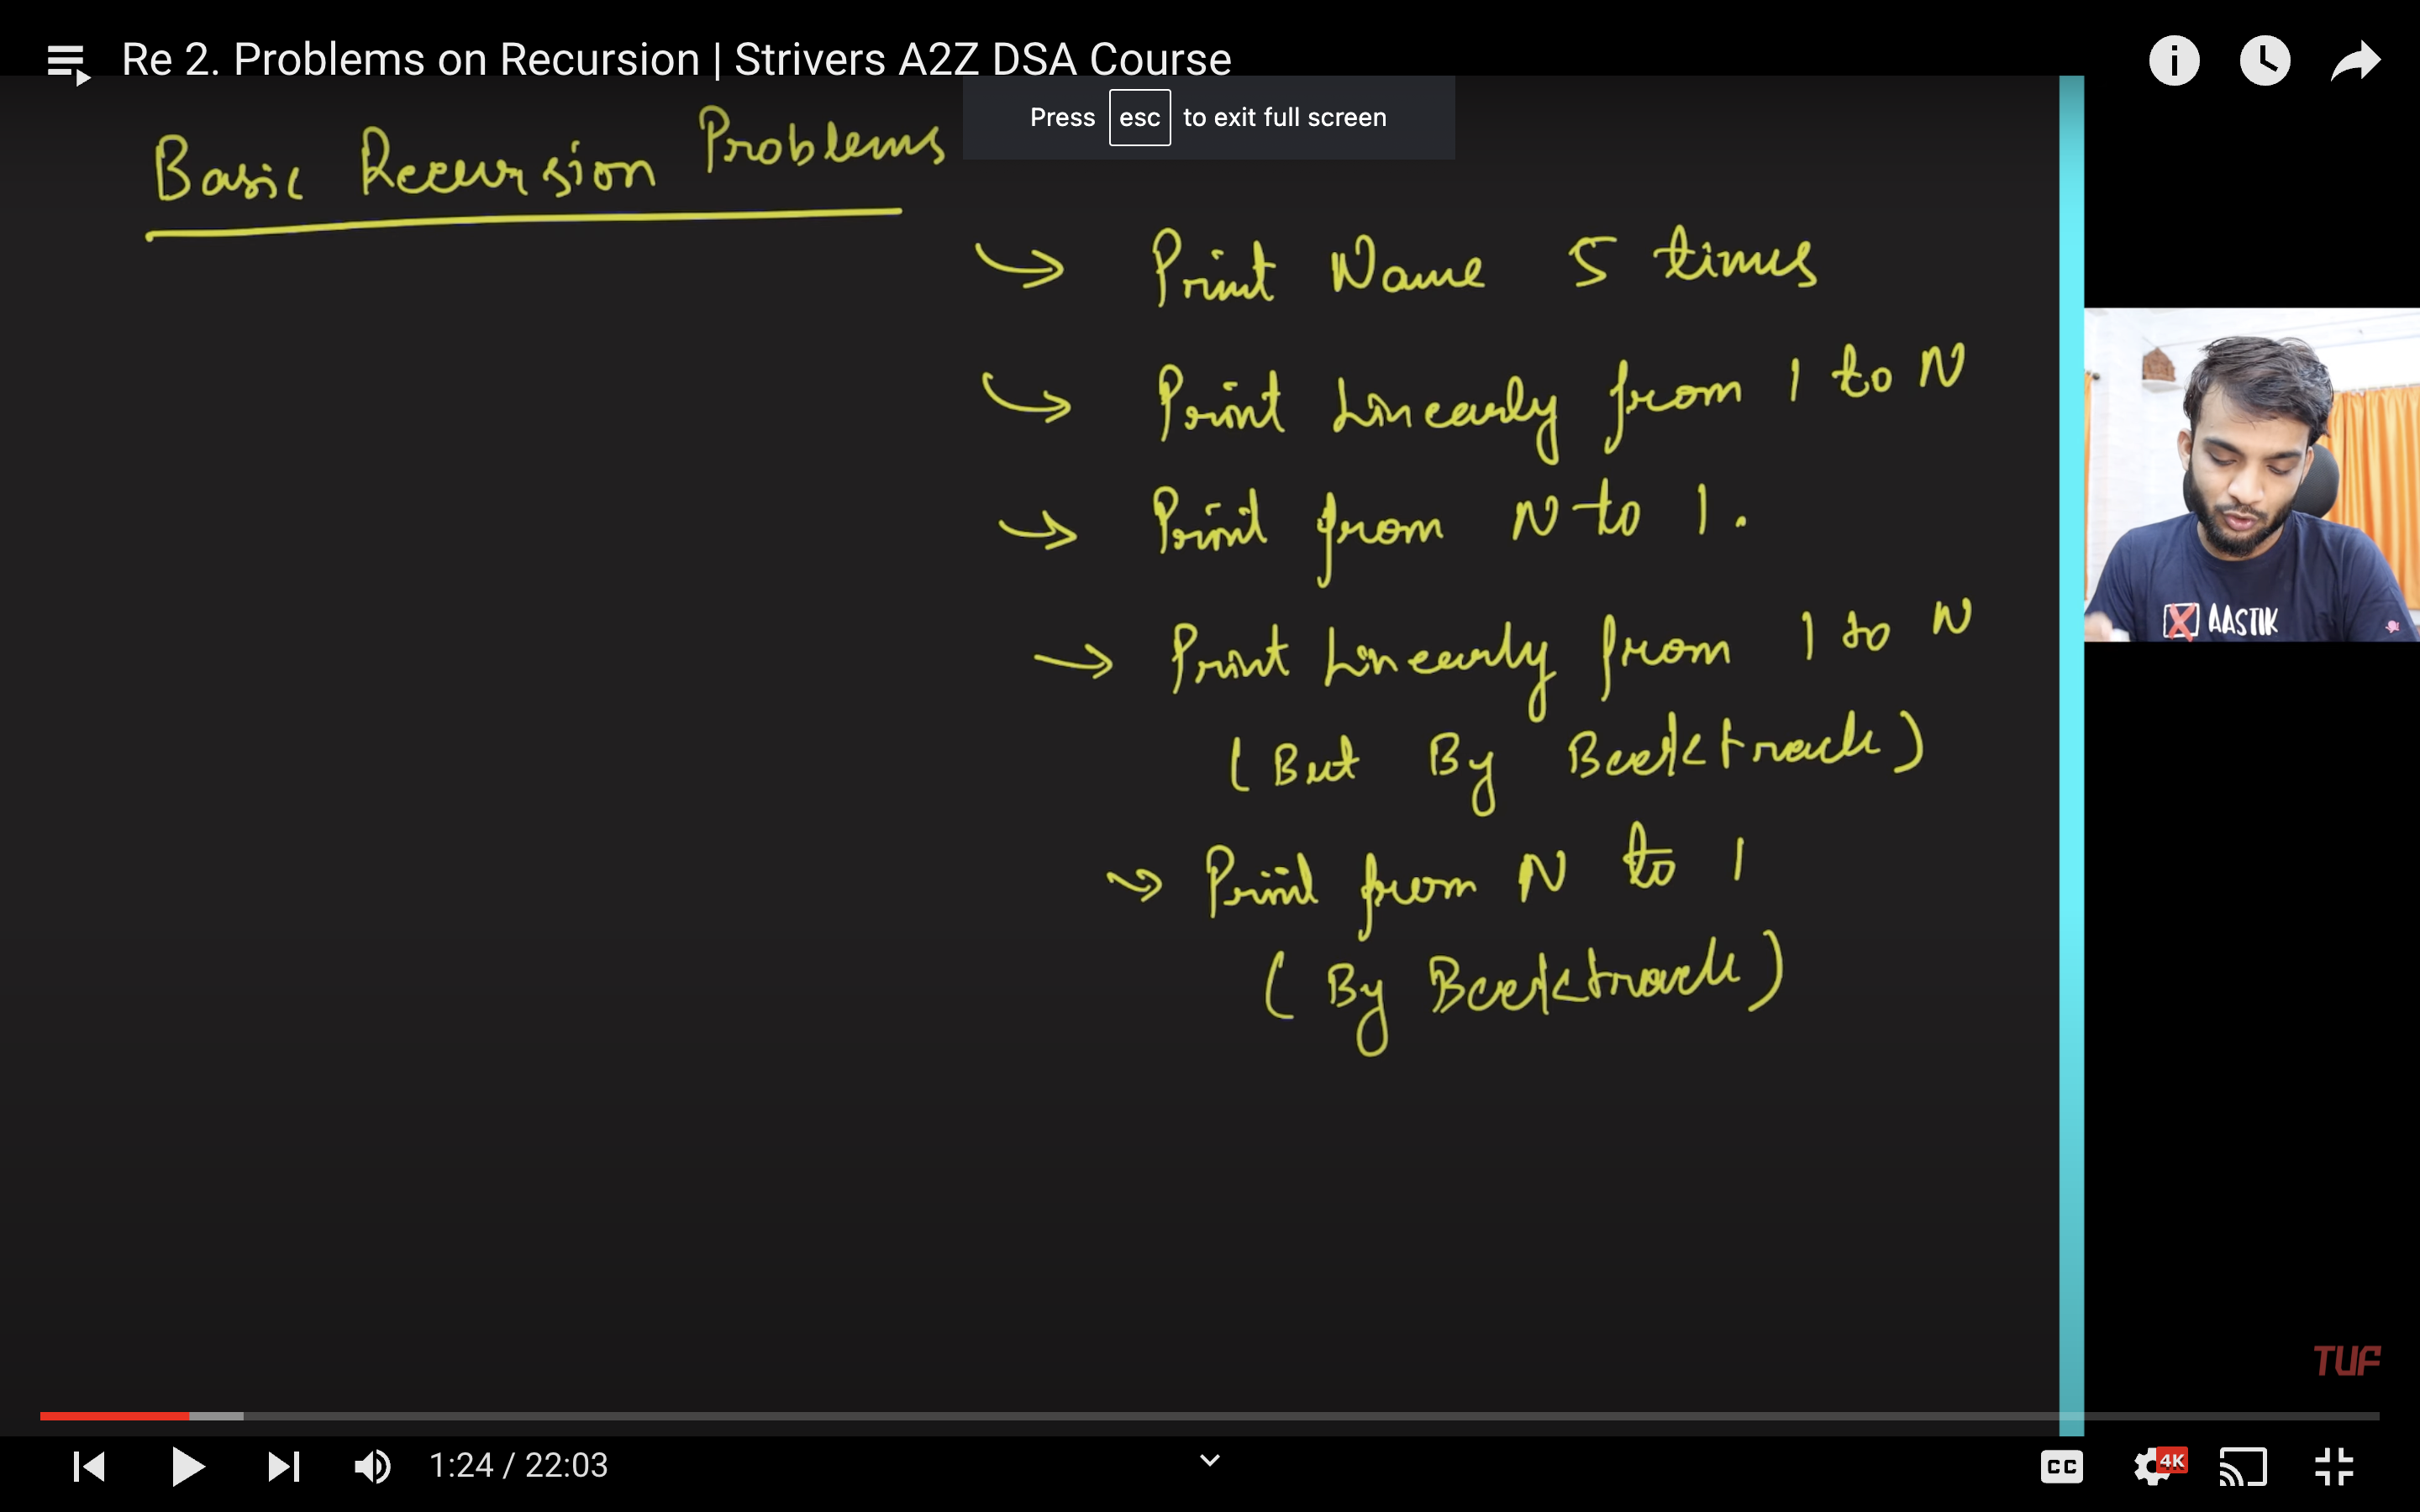 Re 2. Problems on Recursion | Strivers A2Z DSA Course
Press esc to exit full screen
Basic Recursion Problems
Print Name 5 times
Print Linearly from 1 to N
Print from N to 1.
Print Linearly from 1 to N
(But By Backtrack)
Print from N to 1
(By Backtrack)
X AASTIK
TUF
1:24 / 22:03
CC
4K